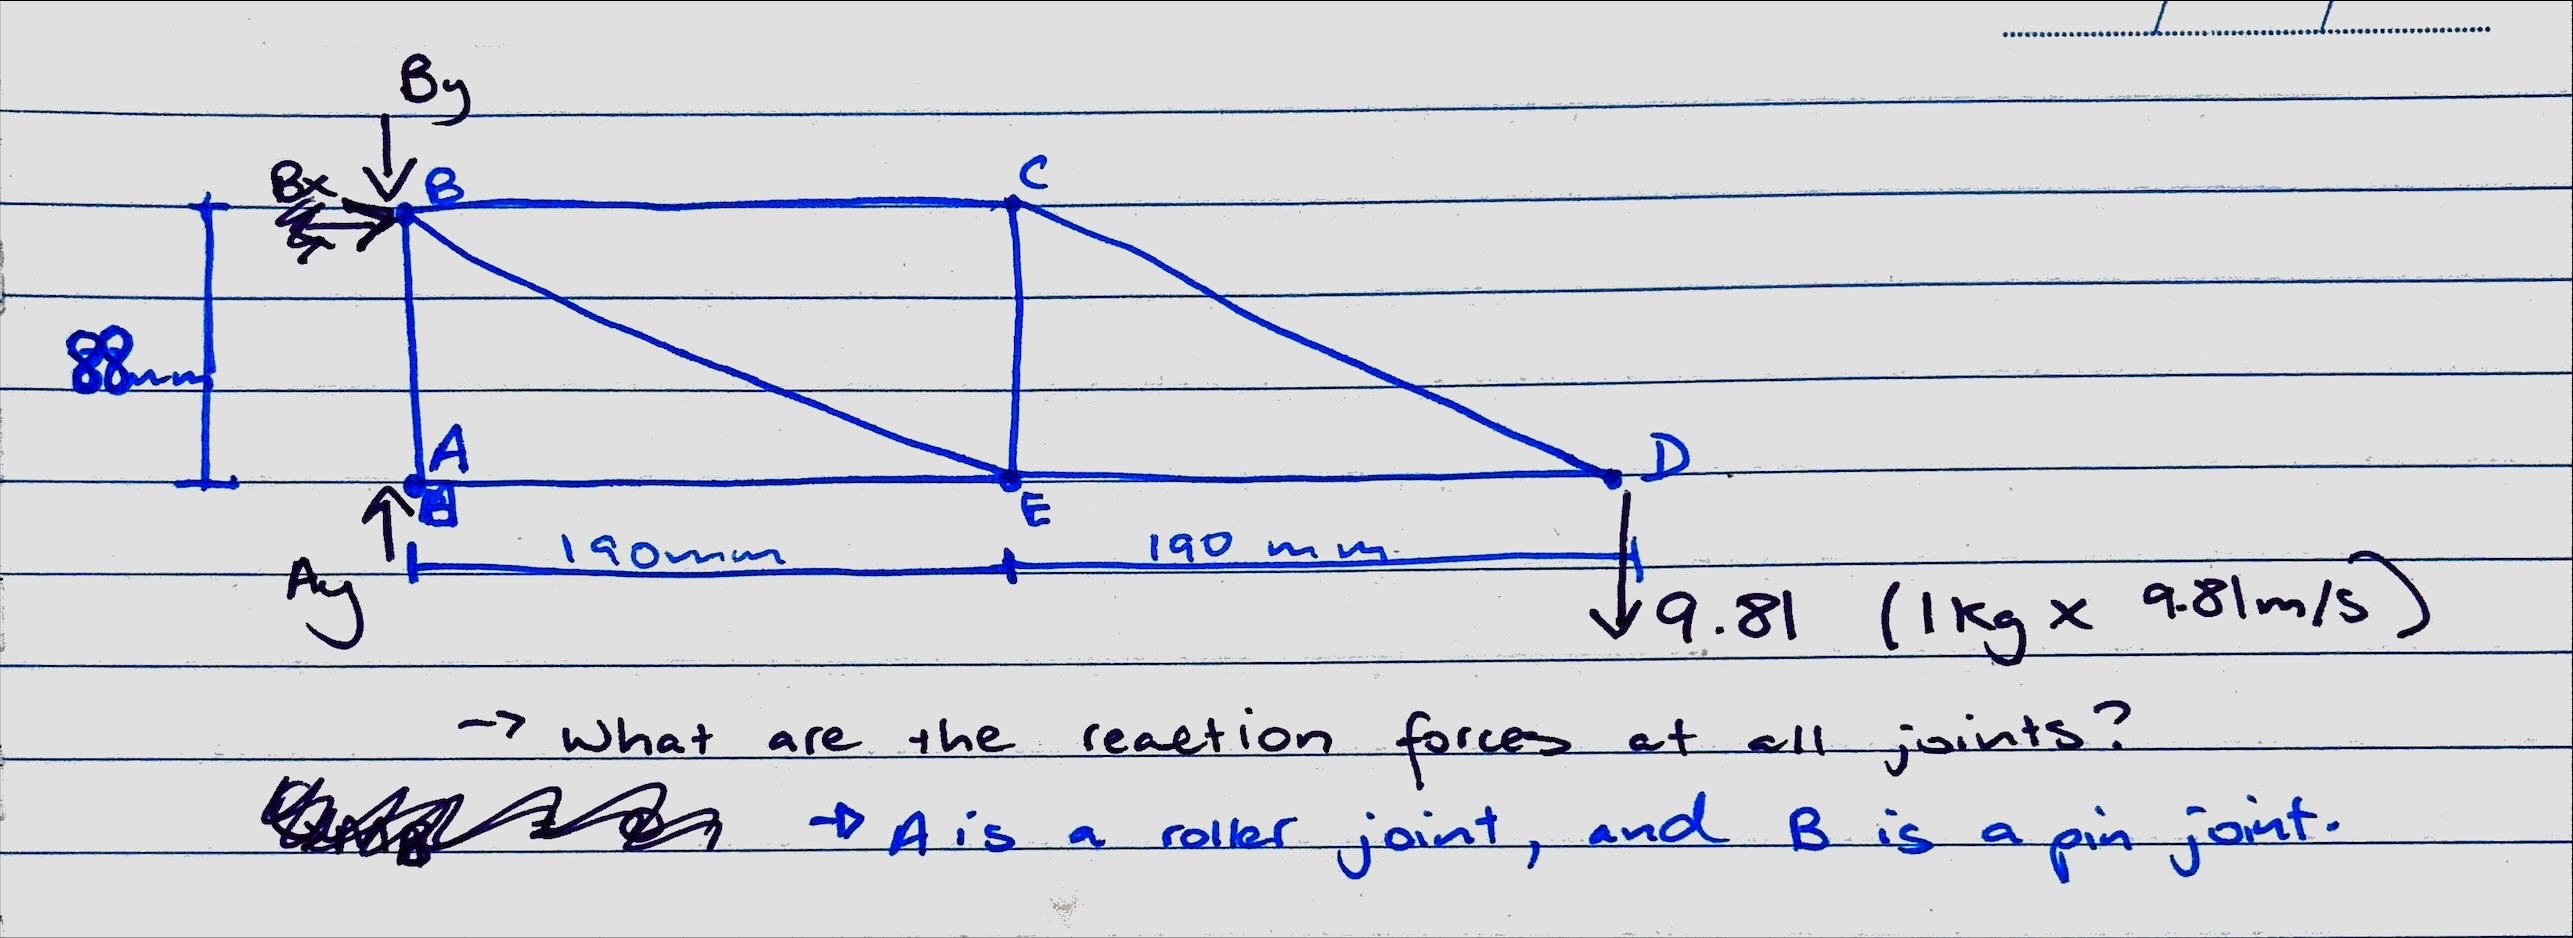 By
Bx
B
C
88mm
A
E
D
Ay
190mm
190 mm
9.81 (1kg x 9.81m/s)
→ What are the reaction forces at all joints?
→ A is a roller joint, and B is a pin joint.